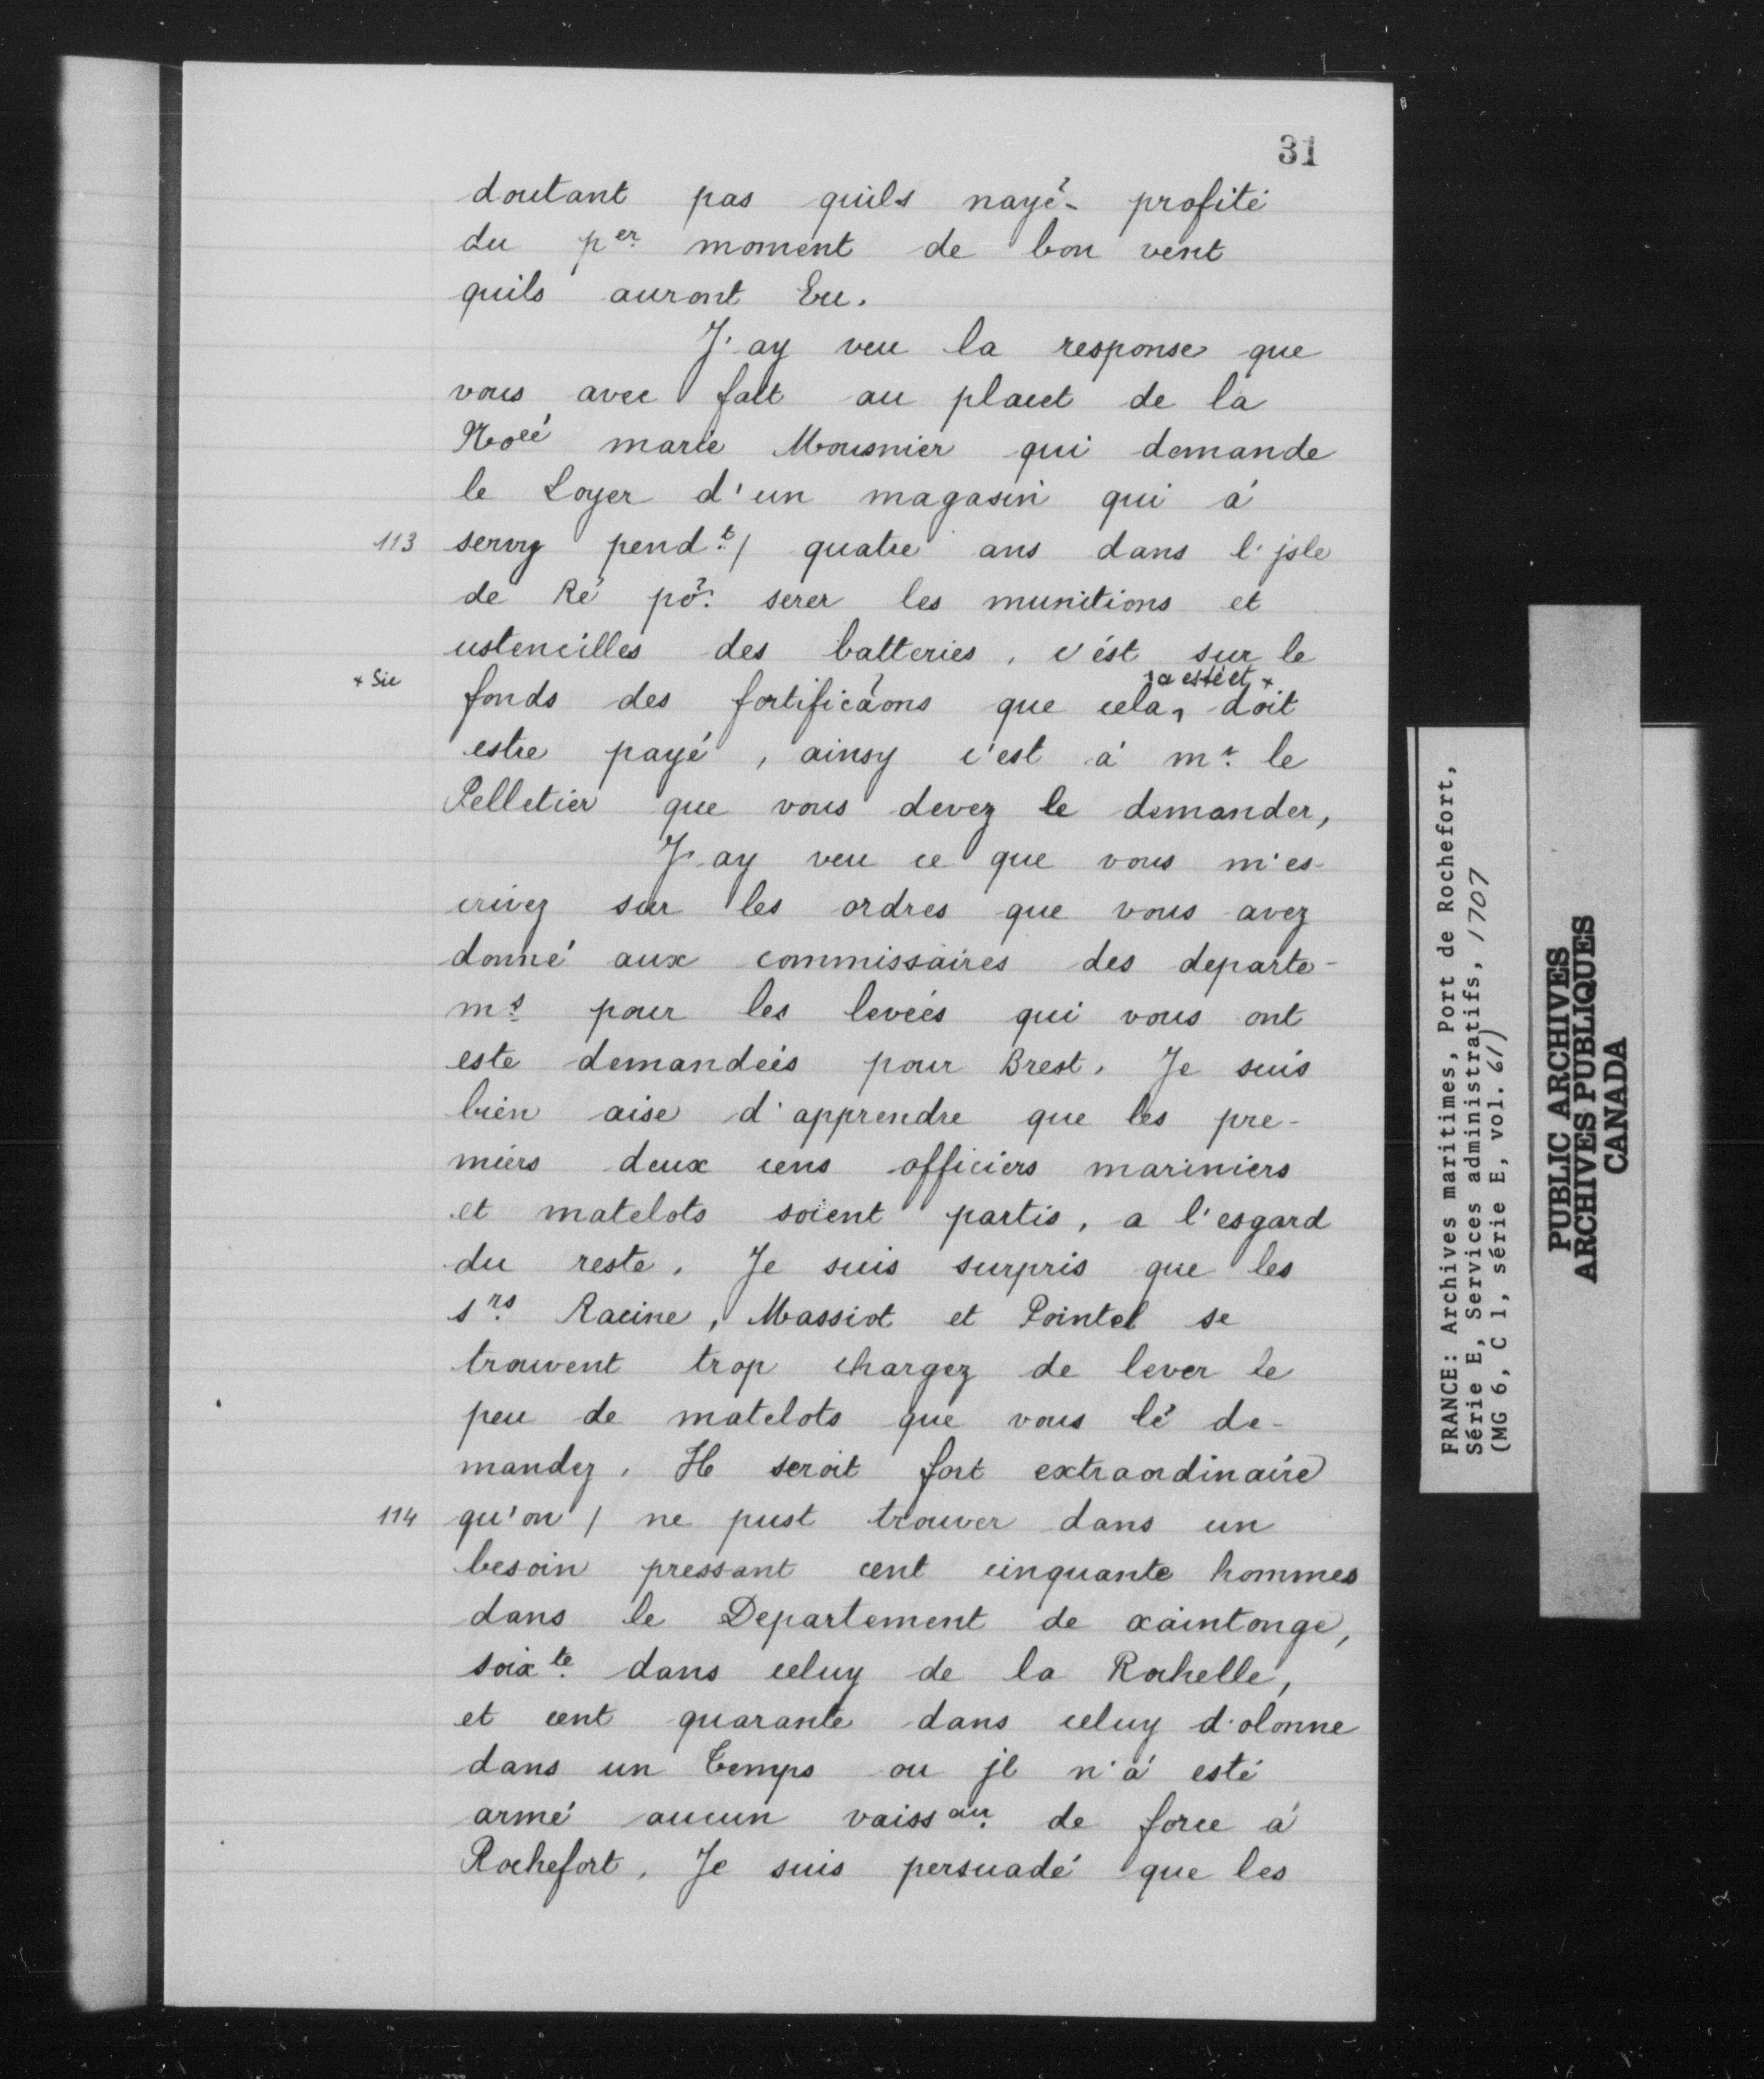 31
doutant pas quils nayê- profité
du p.er moment de bon vent
quils auront Eu.
J'ay veu la response que
vous avec fait au placet de la
Noeé marie Mousnier qui demande
le Loyer d'un magasin qui à
113 servy pend.t / quatre ans dans l'jsle
de Ré po.r serer les munitions et
ustencilles des batteries, c'est sur le
a esté et x
+ Sic fonds des fortificãons que cela doit
estre payé, ainsy c'est à m.r le
Pelletier que vous devez le demander,
J'ay veu ce que vous m'es-
crivez sur les ordres que vous avez
donné aux commissaires des departe-
m.s pour les levées qui vous ont
este demandées pour Brest. Je suis
bien aise d'apprendre que les pre-
miers deux cens officiers mariniers
et matelots soient partis, a l'esgard
du reste. Je suis surpris que les
s.rs Racine, Massiot et Pointel se
trouvent trop chargez de lever le
peu de matelots que vous lé de-
mandez. Il seroit fort extraordinaire
114 qu'on / ne pust trouver dans un
besoin pressant cent cinquante hommes
dans le Departement de xaintonge,
soix.te dans celuy de la Rochelle,
et cent quarante dans celuy d'olonne
dans un temps ou jl n'à esté
armé aucun vaiss.au de force à
Rochefort. Je suis persuadé que les
FRANCE: Archives maritimes, Port de Rochefort,
Série E, Services administratifs, 1707
(MG 6, C 1, série E, vol. 61)
PUBLIC ARCHIVES
ARCHIVES PUBLIQUES
CANADA